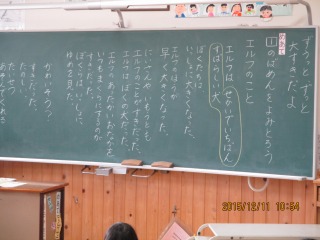 ずうっと ずっと
大すきだよ
めあて
1のばめんをよみとろう
エルフのこと
エルフは、せかいでいちばん
すばらしい犬
ぼくたちは、
いっしょに大きくなった。
エルフのほうが
早く大きくなった。
にいさんやいもうとも
エルフのことがすきだった。
エルフはぼくの犬だった。
エルフのあったかいおなかを、
いつもまくらにするのが
すきだった。
ぼくらはいっしょに
ゆめを見た。
かわいそう?
すきだった。
2015/12/11 10:54